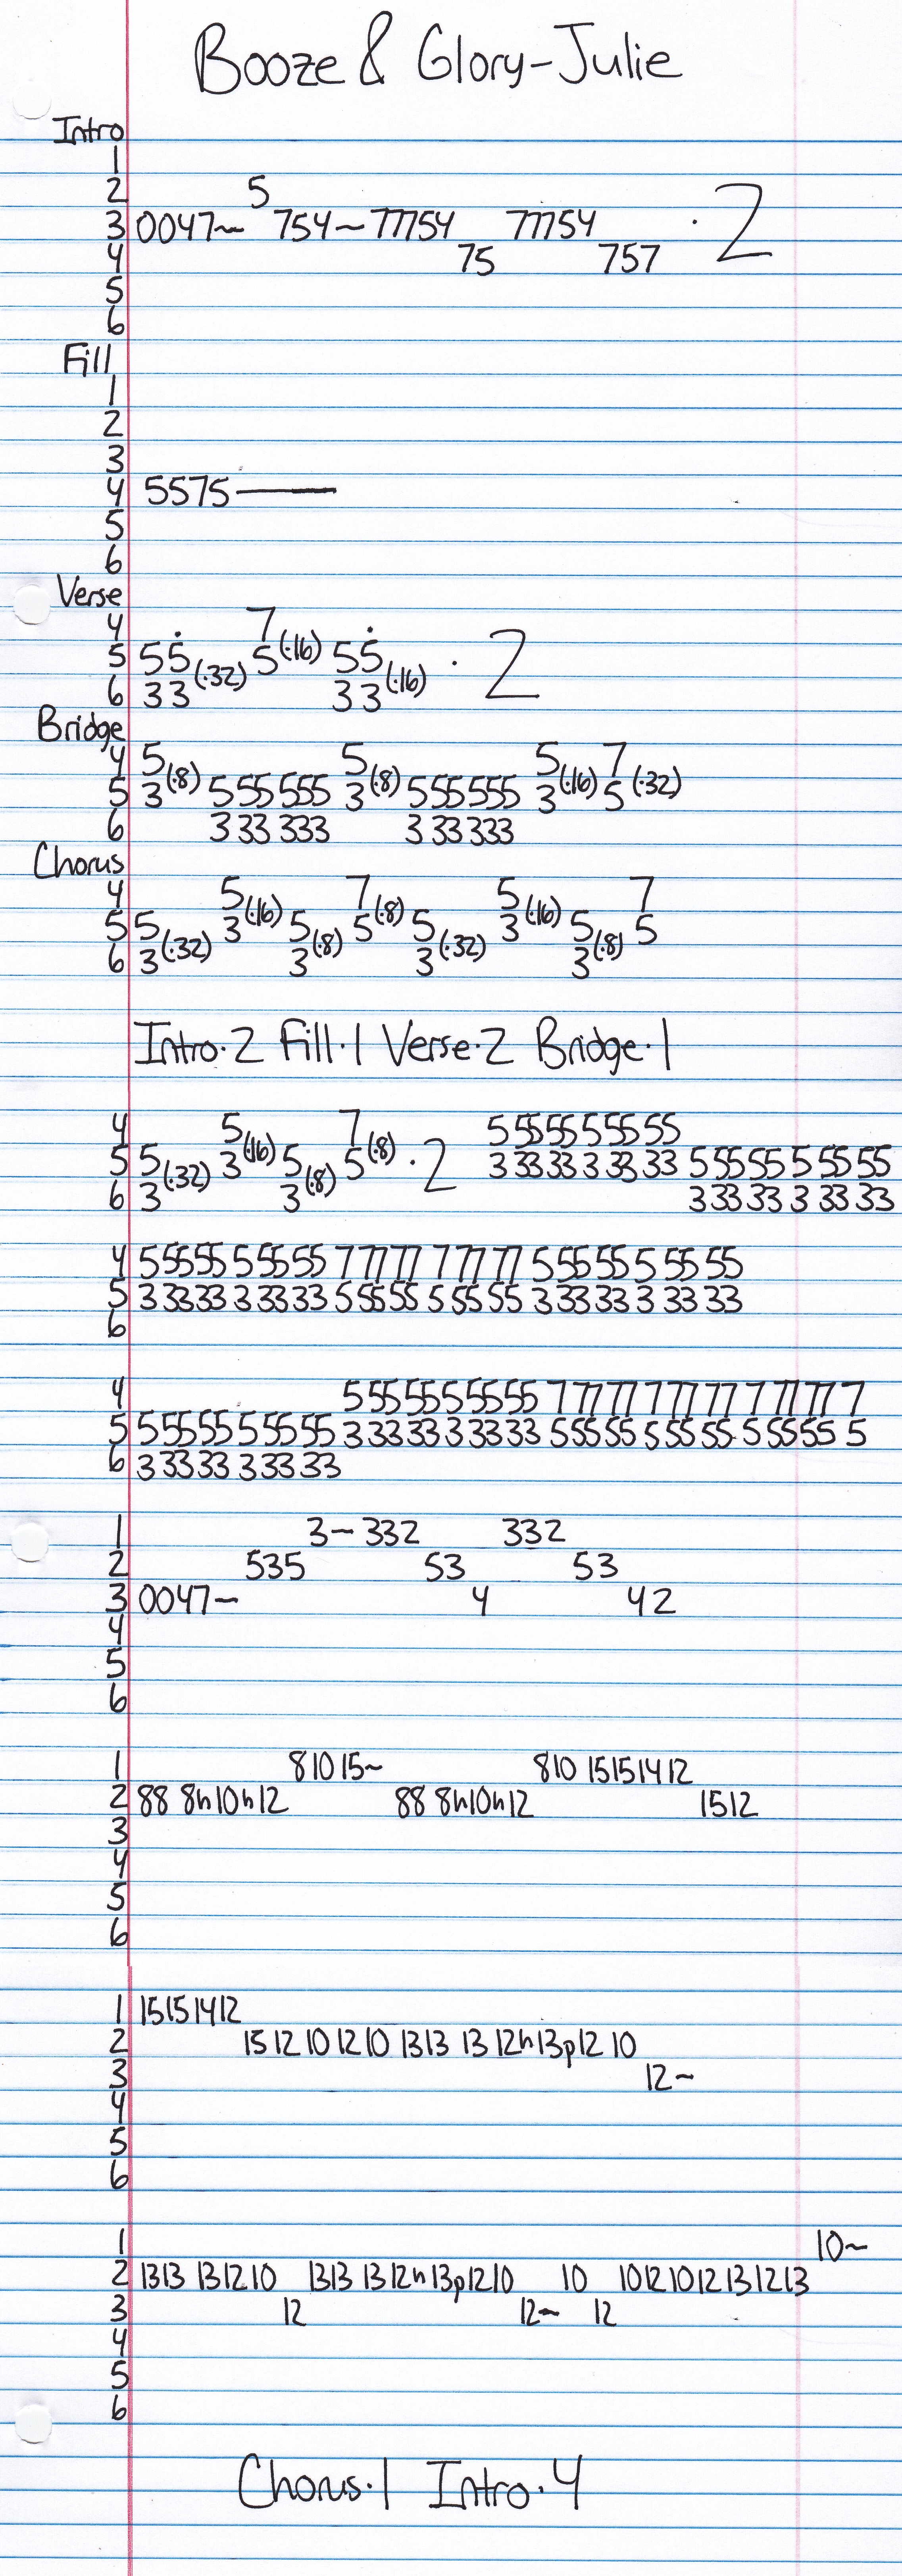 Booze & Glory-Julie
Intro
1
2 5
3 0047~ 754~77754 77754 ·2
4 75 757
5
6
Fill
1
2
3
4 5575———
5
6
Verse
4 7
5 55(·32) 5(·16) 55(·16) ·2
6 33 33
Bridge
4 5 5 5 7
5 3(·8) 555555 3(·8) 555555 3(·16) 5(·32)
6 333333 333333
Chorus
4 5 7 5 7
5 5 3(·16) 5 5(·8) 5 3(·16) 5 5
6 3(·32) 3(·8) 3(·32) 3(·8)
Intro·2 Fill·1 Verse·2 Bridge·1
4 5 7 5 55 55 5 55 55
5 5 3(·16) 5 5(·8) ·2 3 33 33 3 33 33 5 55 55 5 55 55
6 3(·32) 3(·8) 3 33 33 3 33 33
4 5 55 55 5 55 55 7 77 77 7 77 77 5 55 55 5 55 55
5 3 33 33 3 33 33 5 55 55 5 55 55 3 33 33 3 33 33
6
4 5 55 55 5 55 55 7 77 77 7 77 77 7 77 77 7
5 5 55 55 5 55 55 3 33 33 3 33 33 5 55 55 5 55 55 5 55 55 5
6 3 33 33 3 33 33
1 3~332 332
2 535 53 53
3 0047~ 4 42
4
5
6
1 81015~ 810 15151412
2 88 8h10h12 88 8h10h12 1512
3
4
5
6
1 15151412
2 15 12 10 12 10 1313 13 12h13p12 10
3 12~
4
5
6
1 10~
2 1313 131210 1313 1312h13p1210 10 10121012131213
3 12 12~ 12
4
5
6
Chorus·1 Intro·4